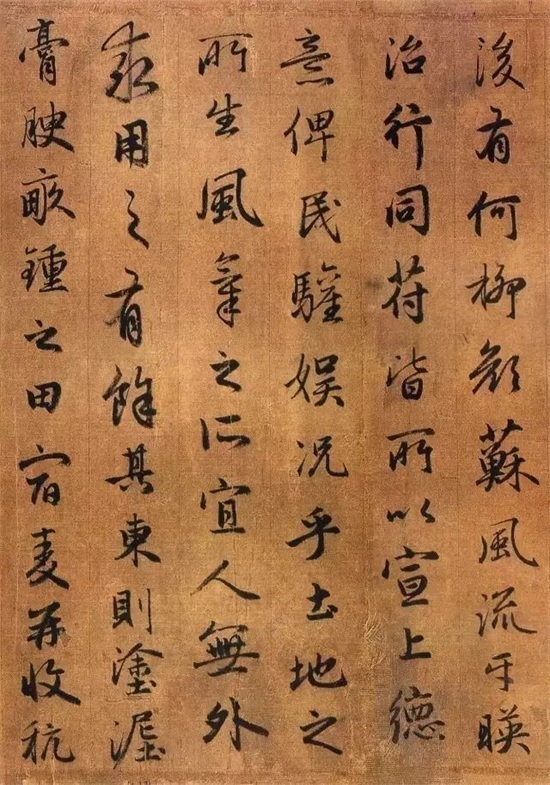 後有何柳顔蘇風流乎暎
治行同符皆所以宣上德
意俾民驩娱况乎土地之
所生風氣之所宜人無外
求用之有餘其東則塗泥
膏腴畝鍾之田宿麦并收秔